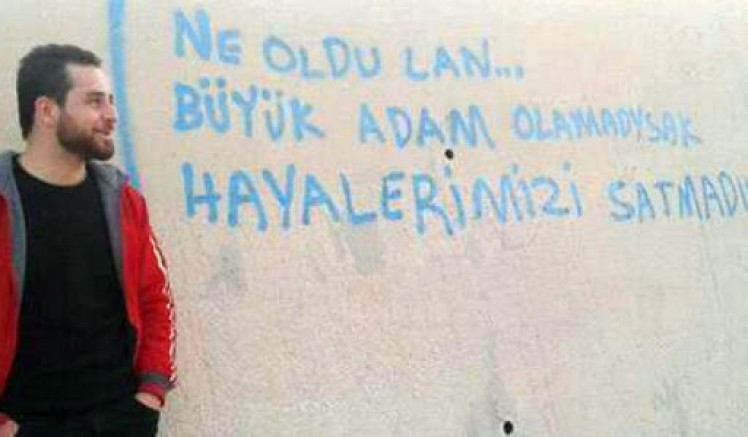 NE OLDU LAN...
BÜYÜK ADAM OLAMADYSAK
HAYALERİMİZİ